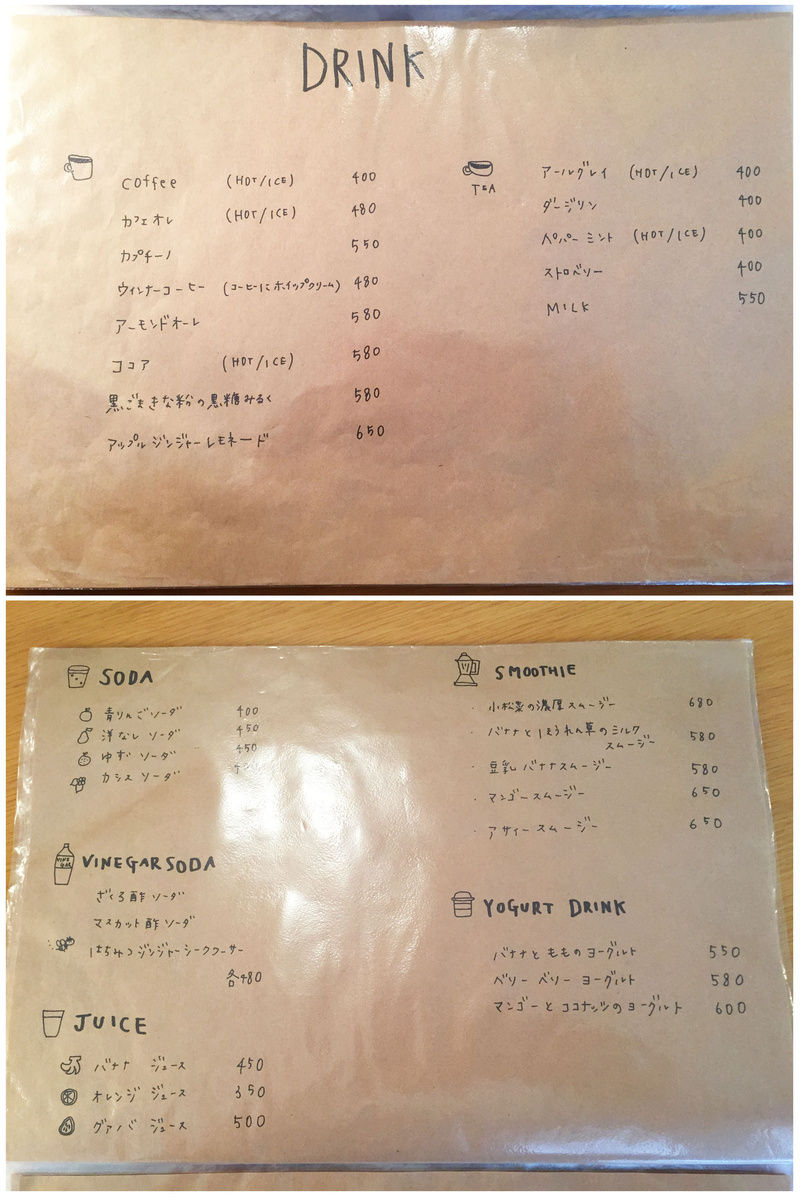 DRINK
coffee (HOT/ICE) 400
カフェオレ (HOT/ICE) 480
カプチーノ 550
ウィンナーコーヒー (コーヒーにホイップクリーム) 480
アーモンドオーレ 580
ココア (HOT/ICE) 580
黒ごまきな粉の黒糖みるく 580
アップルジンジャーレモネード 650
TEA
アールグレイ (HOT/ICE) 400
ダージリン 400
ペパーミント (HOT/ICE) 400
ストロベリー 400
MILK 550
SODA
青りんごソーダ 400
洋なしソーダ 450
ゆずソーダ 450
カシスソーダ
VINEGAR SODA
VINEGAR
ざくろ酢ソーダ
マスカット酢ソーダ
はちみつジンジャーシークワーサー
各480
JUICE
バナナジュース 450
オレンジジュース 350
グァバジュース 500
SMOOTHIE
・小松菜の濃厚スムージー 680
・バナナとほうれん草のミルク
スムージー 580
・豆乳バナナスムージー 580
・マンゴースムージー 650
・アサイースムージー 650
YOGURT DRINK
バナナともものヨーグルト 550
ベリーベリーヨーグルト 580
マンゴーとココナッツのヨーグルト 600